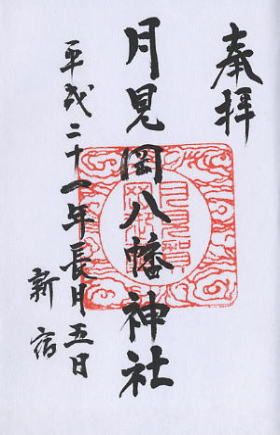 奉拝
月見岡八幡神社
平成二十一年長月五日
新宿